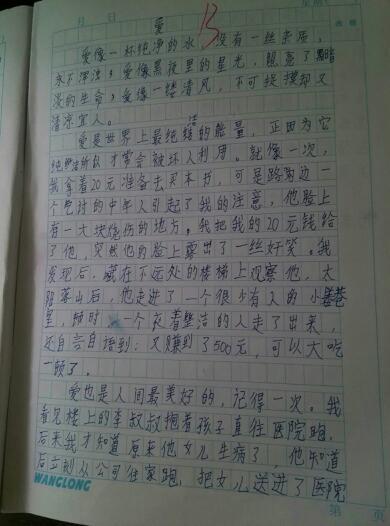 爱
13
爱像一杯纯净的水,没有一丝杂质,
永不浑浊;爱像黑夜里的星光,照亮了黯
淡的生命;爱像一缕清风,不可捉摸却又
清凉宜人。
爱是世界上最纯洁的能量,正因为它
纯洁所以才常会被坏人利用。就像一次,
我拿着20元准备去买本书,可是路边一
个乞讨的中年人引起了我的注意,他脸上
有一大块烧伤的地方。我把我的20元钱给
了他,突然他的脸上露出了一丝奸笑。我
发现后,藏在不远处的楼梯上观察他,太
阳落山后,他走进了一个很少有人的小巷
里,顿时,一个衣着整洁的人走了出来,
还自言自语到:又赚到了500元,可以大吃
一顿了。
爱也是人间最美好的,记得一次。我
看见楼上的李叔叔抱着孩子直往医院跑,
后来我才知道原来他女儿生病了,他知道
后立刻从公司往家跑,把女儿送进了医院
WANGLONG
第 页